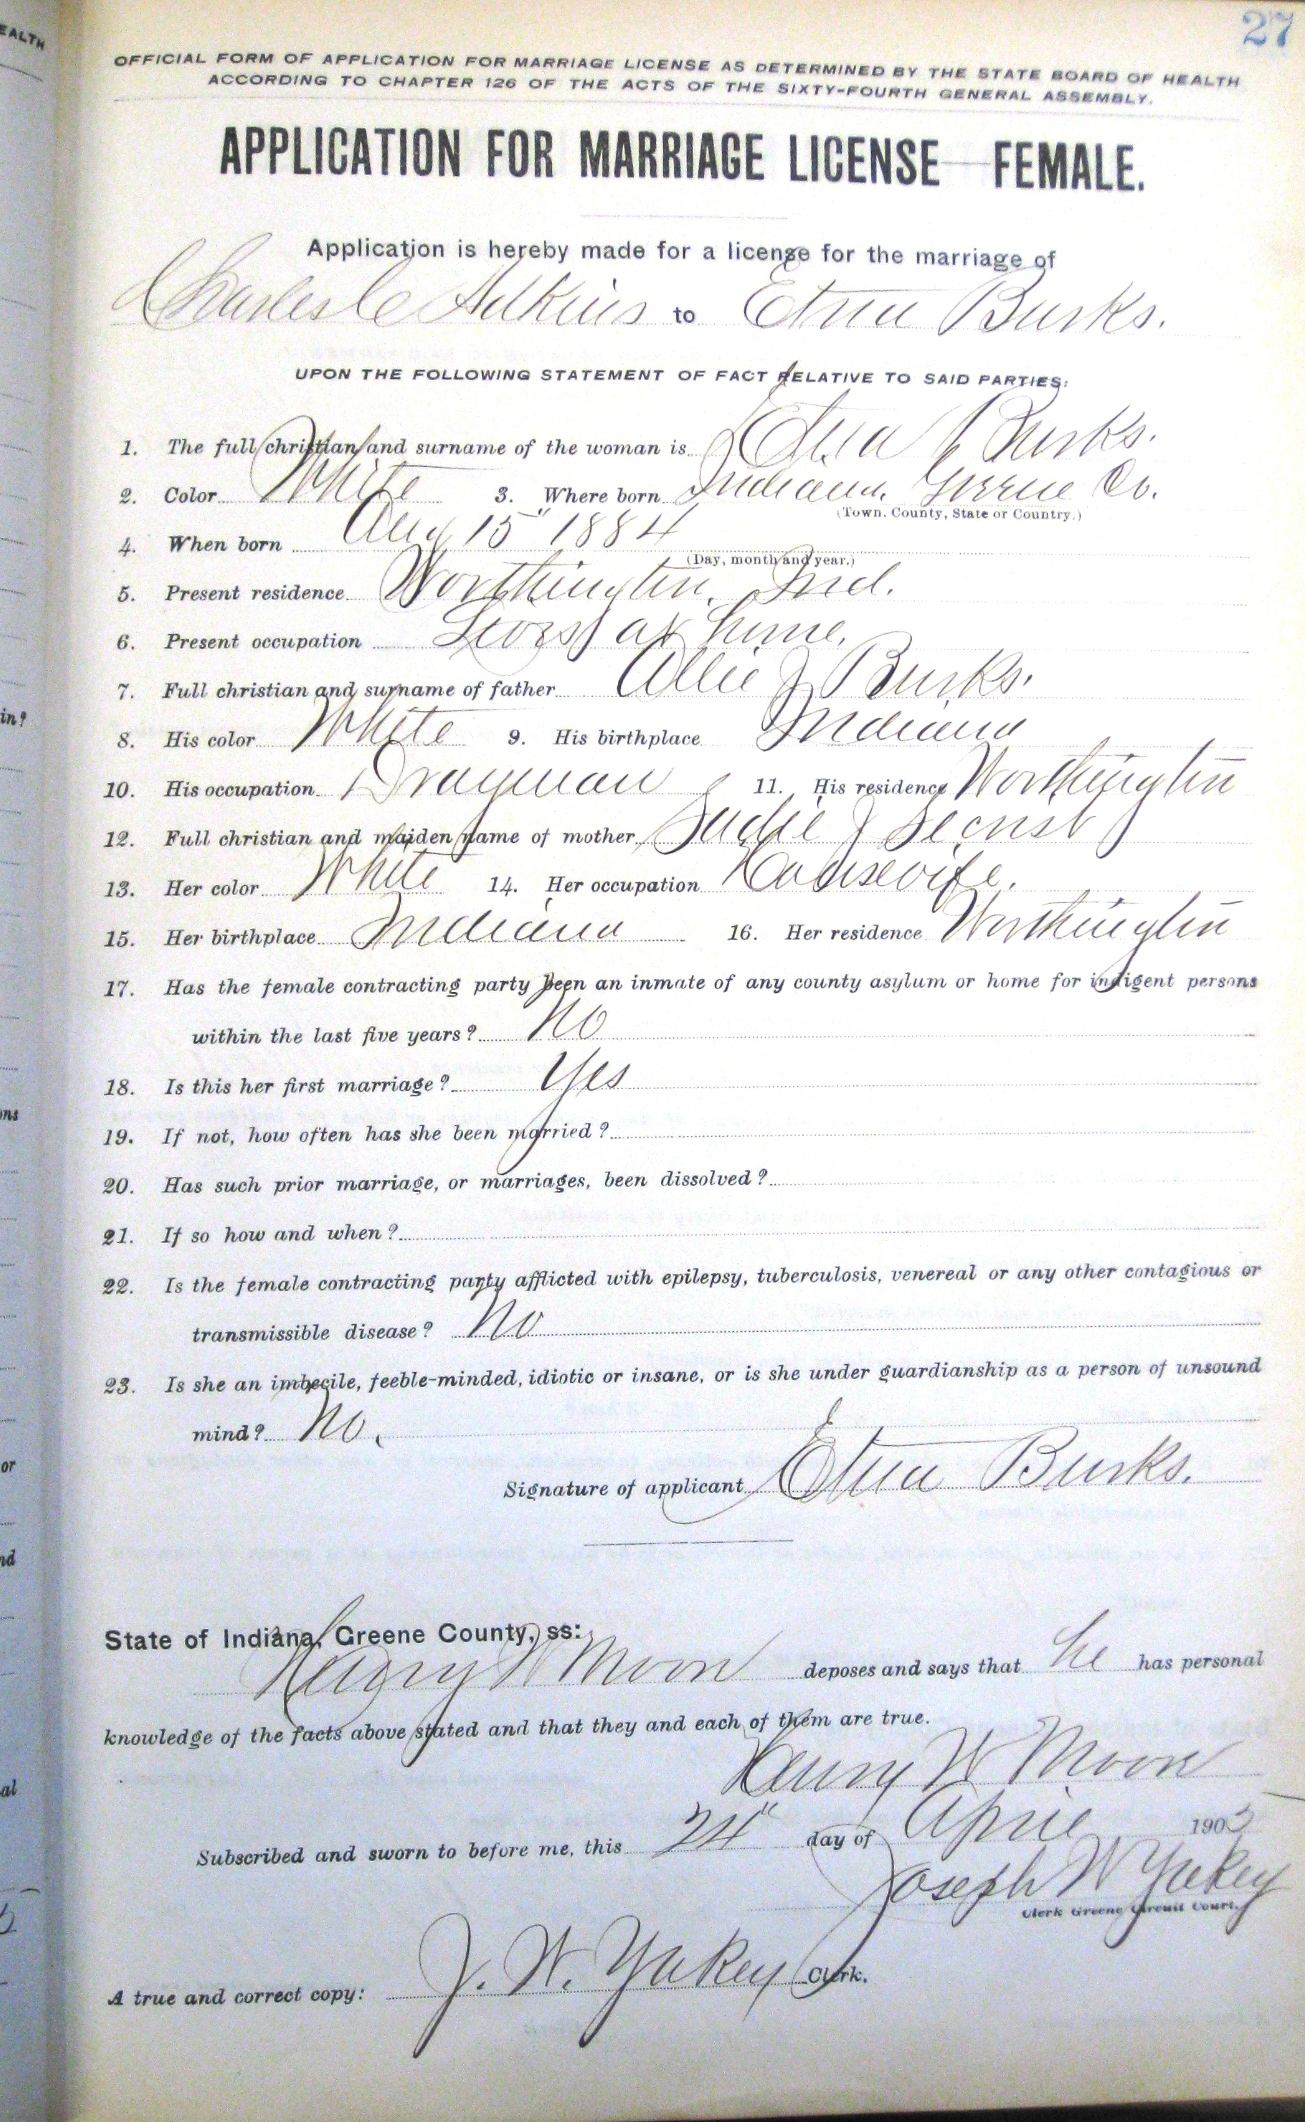 27
OFFICIAL FORM OF APPLICATION FOR MARRIAGE LICENSE AS DETERMINED BY THE STATE BOARD OF HEALTH
ACCORDING TO CHAPTER 126 OF THE ACTS OF THE SIXTY-FOURTH GENERAL ASSEMBLY.
APPLICATION FOR MARRIAGE LICENSE FEMALE.
Application is hereby made for a license for the marriage of
Charles C Adkins to Etna Burks.
UPON THE FOLLOWING STATEMENT OF FACT RELATIVE TO SAID PARTIES:
1. The full christian and surname of the woman is Etna Burks.
2. Color White 3. Where born Indiana, Greene Co.
(Town, County, State or Country.)
4. When born Aug 15" 1884
(Day, month and year.)
5. Present residence Worthington, Ind.
6. Present occupation at home.
7. Full christian and surname of father Allie J Burks.
8. His color White 9. His birthplace Indiana
10. His occupation Drayman 11. His residence Worthington
12. Full christian and maiden name of mother J Secrist
13. Her color White 14. Her occupation Housewife.
15. Her birthplace Indiana 16. Her residence Worthington
17. Has the female contracting party been an inmate of any county asylum or home for indigent persons
within the last five years? No
18. Is this her first marriage? Yes
19. If not, how often has she been married?
20. Has such prior marriage, or marriages, been dissolved?
21. If so how and when?
22. Is the female contracting party afflicted with epilepsy, tuberculosis, venereal or any other contagious or
transmissible disease? No
23. Is she an imbecile, feeble-minded, idiotic or insane, or is she under guardianship as a person of unsound
mind? No.
Signature of applicant Etna Burks.
State of Indiana, Greene County, ss:
Henry W Moon deposes and says that he has personal
knowledge of the facts above stated and that they and each of them are true.
Henry W Moon
Subscribed and sworn to before me, this 24" day of April 190
Joseph W Yakey
Clerk Greene Circuit Court.
A true and correct copy: J. W. Yakey Clerk.